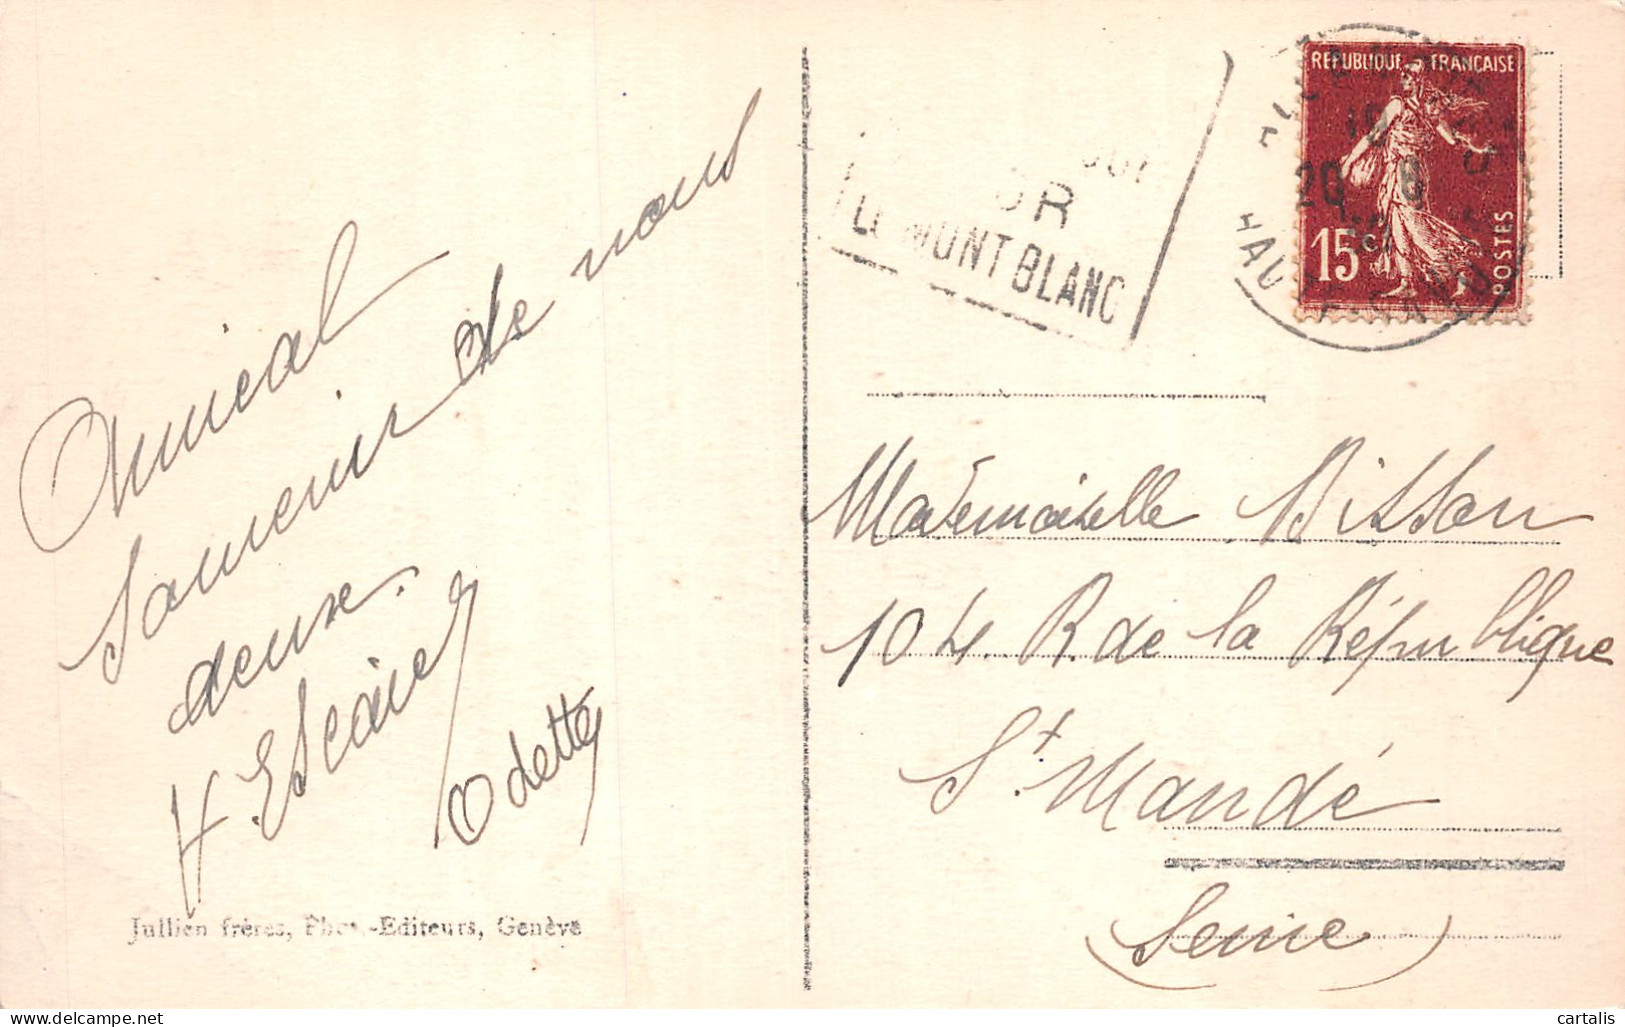 Amical
souvenir de nous
deux.
Odette
Jullien frères, Phot.-Editeurs, Genève
LE MONT BLANC
REPUBLIQUE FRANCAISE
15c
POSTES
Mademoiselle Bisson
104. R. de la République
St. Mandé
(Seine)
cartalis